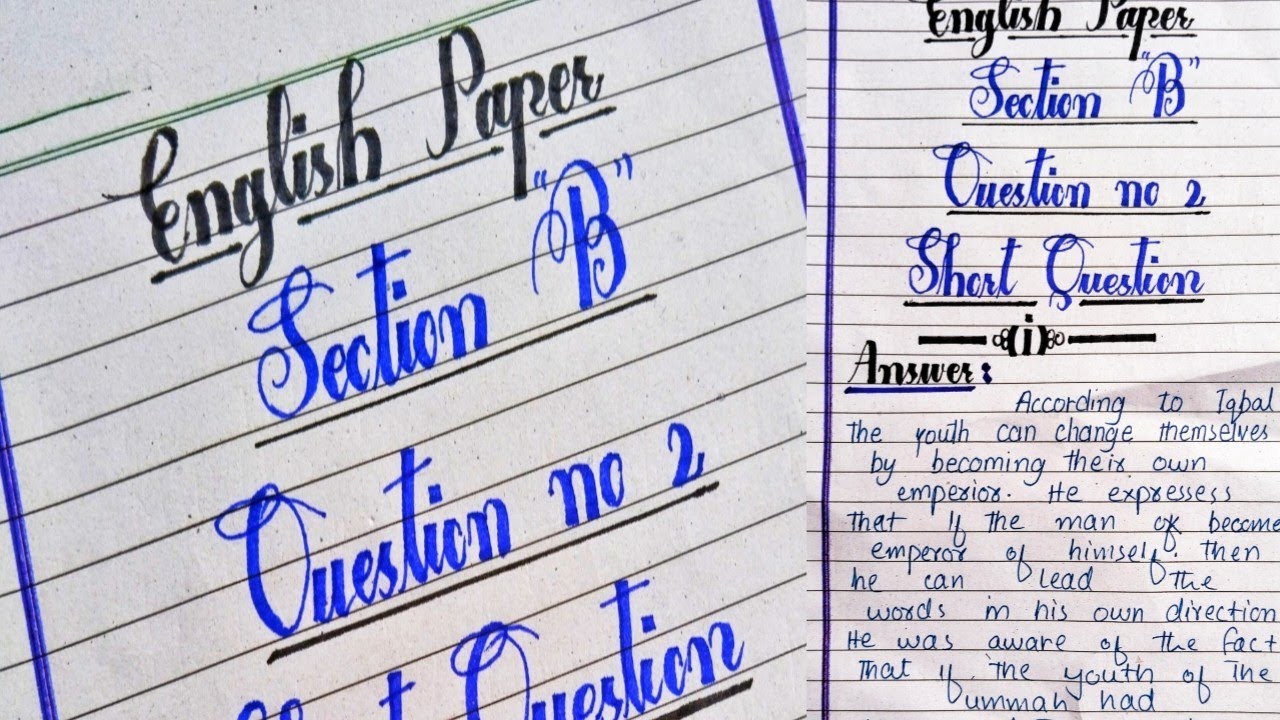 English Paper
Section "B"
Question no 2
Short Question
English Paper
Section "B"
Question no 2
Short Question
(i)
Answer:
According to Iqbal
The youth can change themselves
by becoming their own
emperior. He expressess
that if the man of become
emperor of himself. then
he can lead the
words in his own direction
He was aware of the fact
That if the youth of The
ummah had